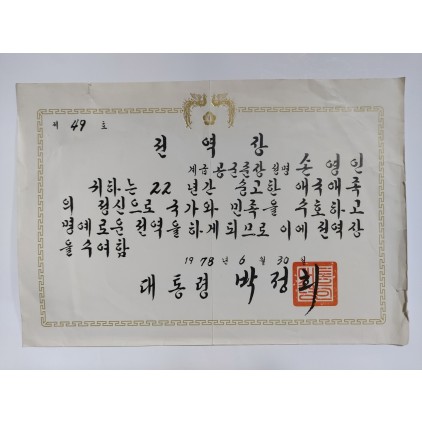 제 49 호
전 역 장
계급 공군준장 성명 손 영 인
귀하는 22 년간 숭고한 애국애족
의 정신으로 국가와 민족을 수호하고
명예로운 전역을 하게 되므로 이에 전역장
을 수여함
1978 년 6 월 30 일
대통령 박정희